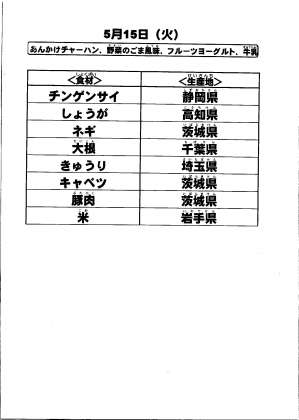 5月15日（火）
あんかけチャーハン、野菜のごま風味、フルーツヨーグルト、牛乳
＜食材＞ ＜生産地＞
チンゲンサイ 静岡県
しょうが 高知県
ネギ 茨城県
大根 千葉県
きゅうり 埼玉県
キャベツ 茨城県
豚肉 茨城県
米 岩手県